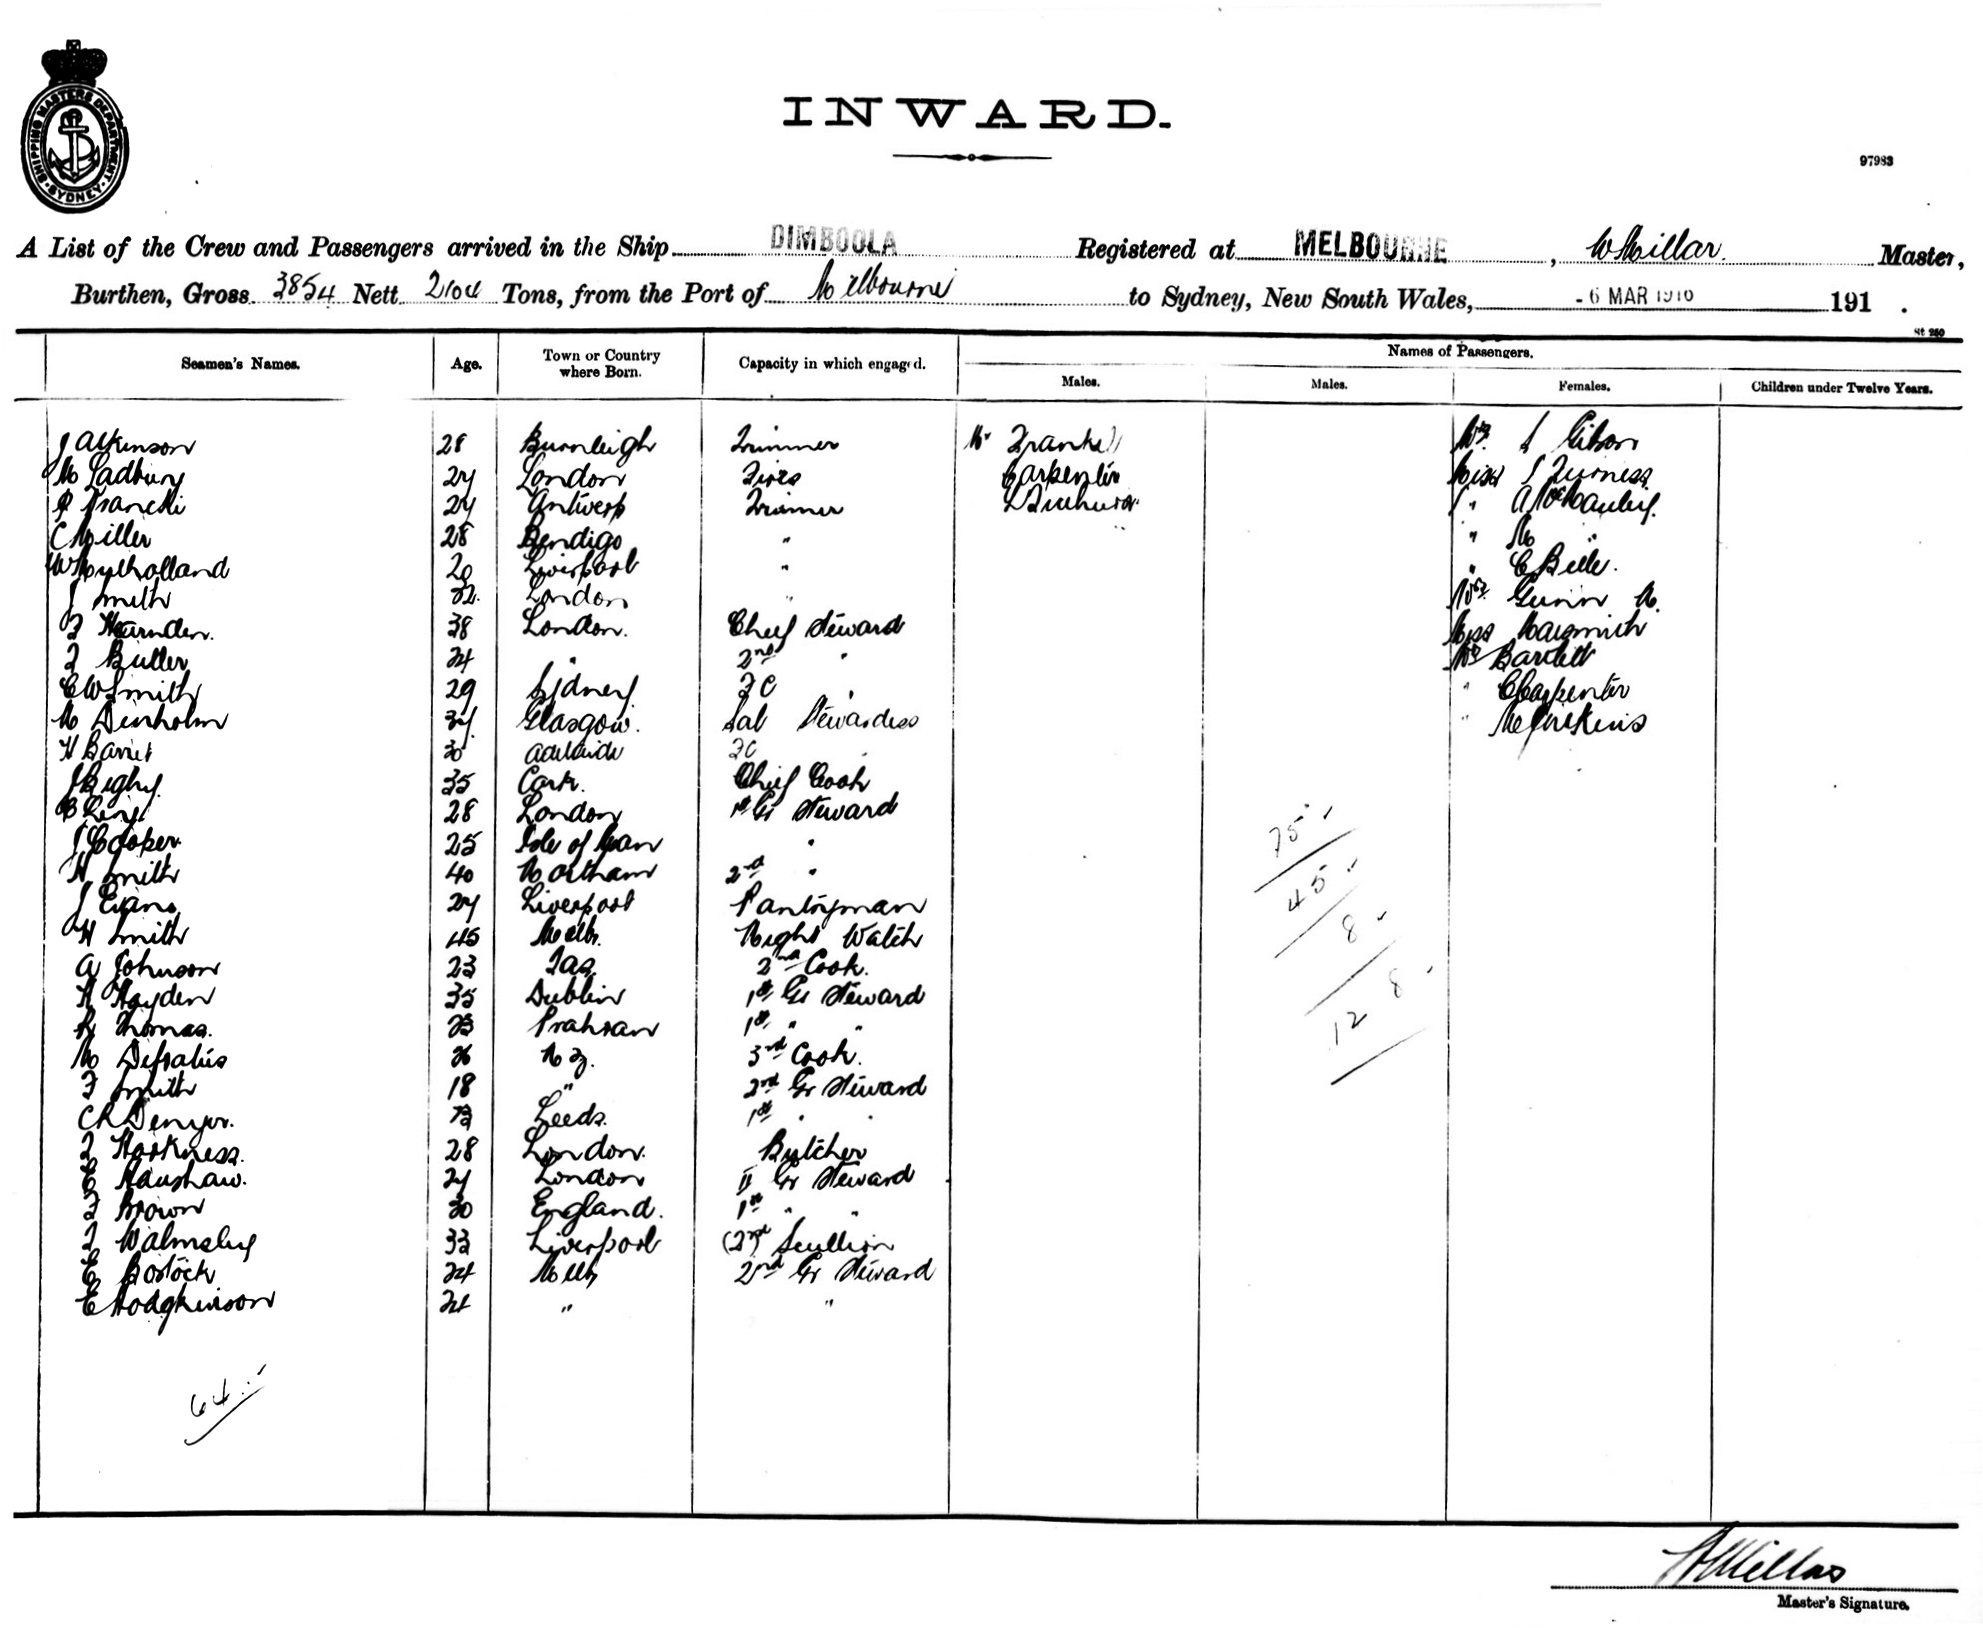 SHIPPING MASTERS DEPARTMENT
SYDNEY
INWARD.
97983
A List of the Crew and Passengers arrived in the Ship DIMBOOLA Registered at MELBOURNE, W Millar Master,
Burthen, Gross 3854 Nett 2104 Tons, from the Port of Melbourne to Sydney, New South Wales, - 6 MAR 1916 191 .
St 250
Seamen's Names. Age. Town or Country where Born. Capacity in which engaged. Names of Passengers.
Males. Males. Females. Children under Twelve Years.
J Atkinson 28 Burnleigh Trimmer Mr Frankel Mrs S Gibson
M Ladbury 24 London Fires Carpenter Miss S Furness
Francki 24 Antwerp Trimmer " A McCauley.
C Miller 28 Bendigo " " M "
W Mulholland 20 Liverpool " " C Belle.
J Smith 32 London " Mrs Gunn M.
F Hearnden. 38 London. Chief Steward Miss Naismith
F Butler 24 " 2nd " Mrs Bartlett
C W Smith 29 Sydney FC " " C Carpenter
M Denholm 34 Glasgow. Sal Stewardess "
H Barnet 30 Adelaide FC "
J Bigby. 35 Cork. Chief Cook
B Levy 28 London 1st Gr Steward
J Cooper. 25 Isle of Man "
H Smith 40 Northam 2nd "
J Evans 24 Liverpool Pantryman
H Smith 45 Melb. Night Watch
A Johnson 23 Tas. 2nd Cook.
H Hayden 35 Dublin 1st Gr Steward
R Thomas. 23 Prahran 1st " "
M 26 NZ. 3rd Cook.
F Smith 18 " 2nd Gr Steward
C R Denyer. 23 Leeds. 1st " "
F Harkness. 28 London. Butcher
E Hanshaw. 24 London II Gr Steward
F Brown 30 England. 1st " "
F Walmsley 33 Liverpool (2nd) Scullion
E Bostock 24 Melb 2nd Gr Steward
E Hodgkinson 24 " "
75
45
8
128
64
W Millar
Master's Signature.